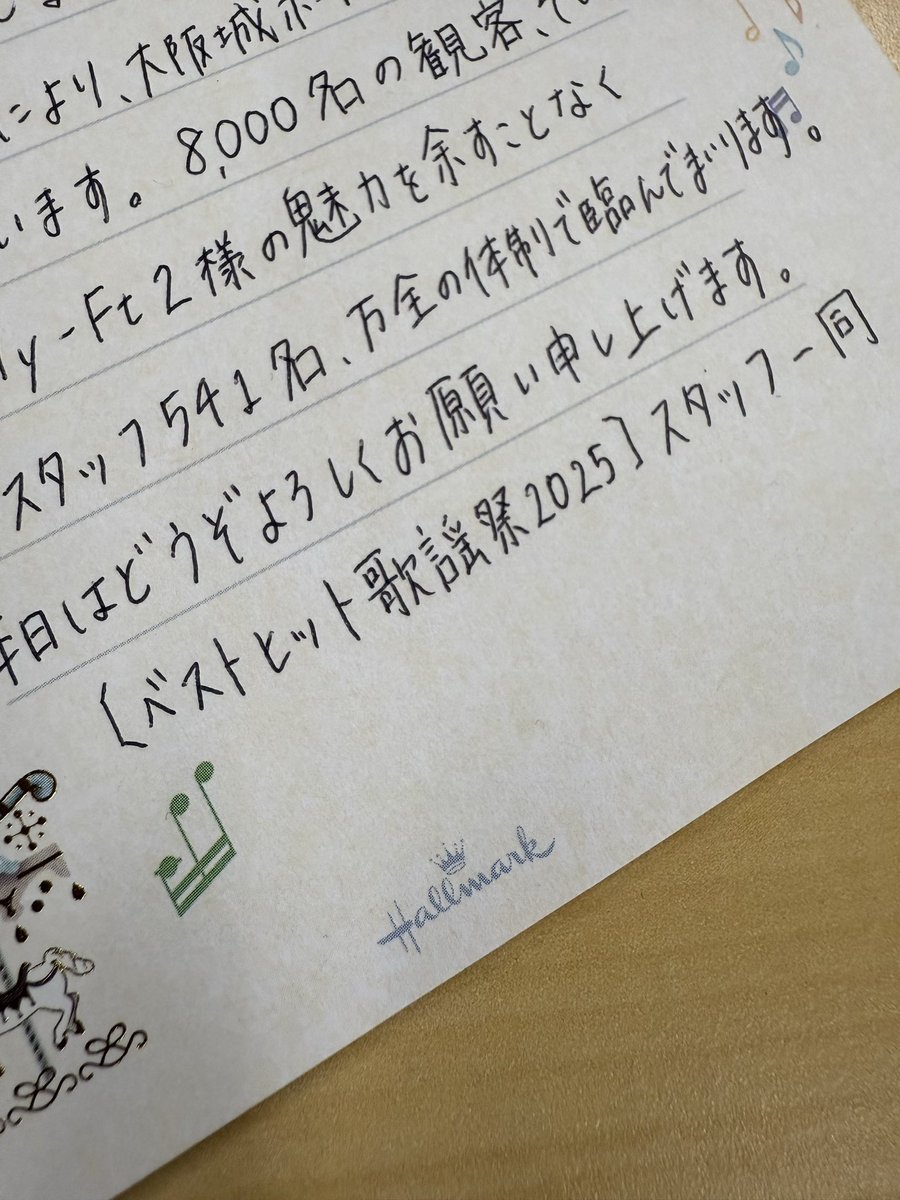 により、大阪城ホ
います。8,000名の観客、てい
y-Ft2様の魅力を余すことなく
スタッフ541名、万全の体制で臨んでまいります。
日はどうぞよろしくお願い申し上げます。
〔ベストヒット歌謡祭2025〕スタッフ一同
Hallmark